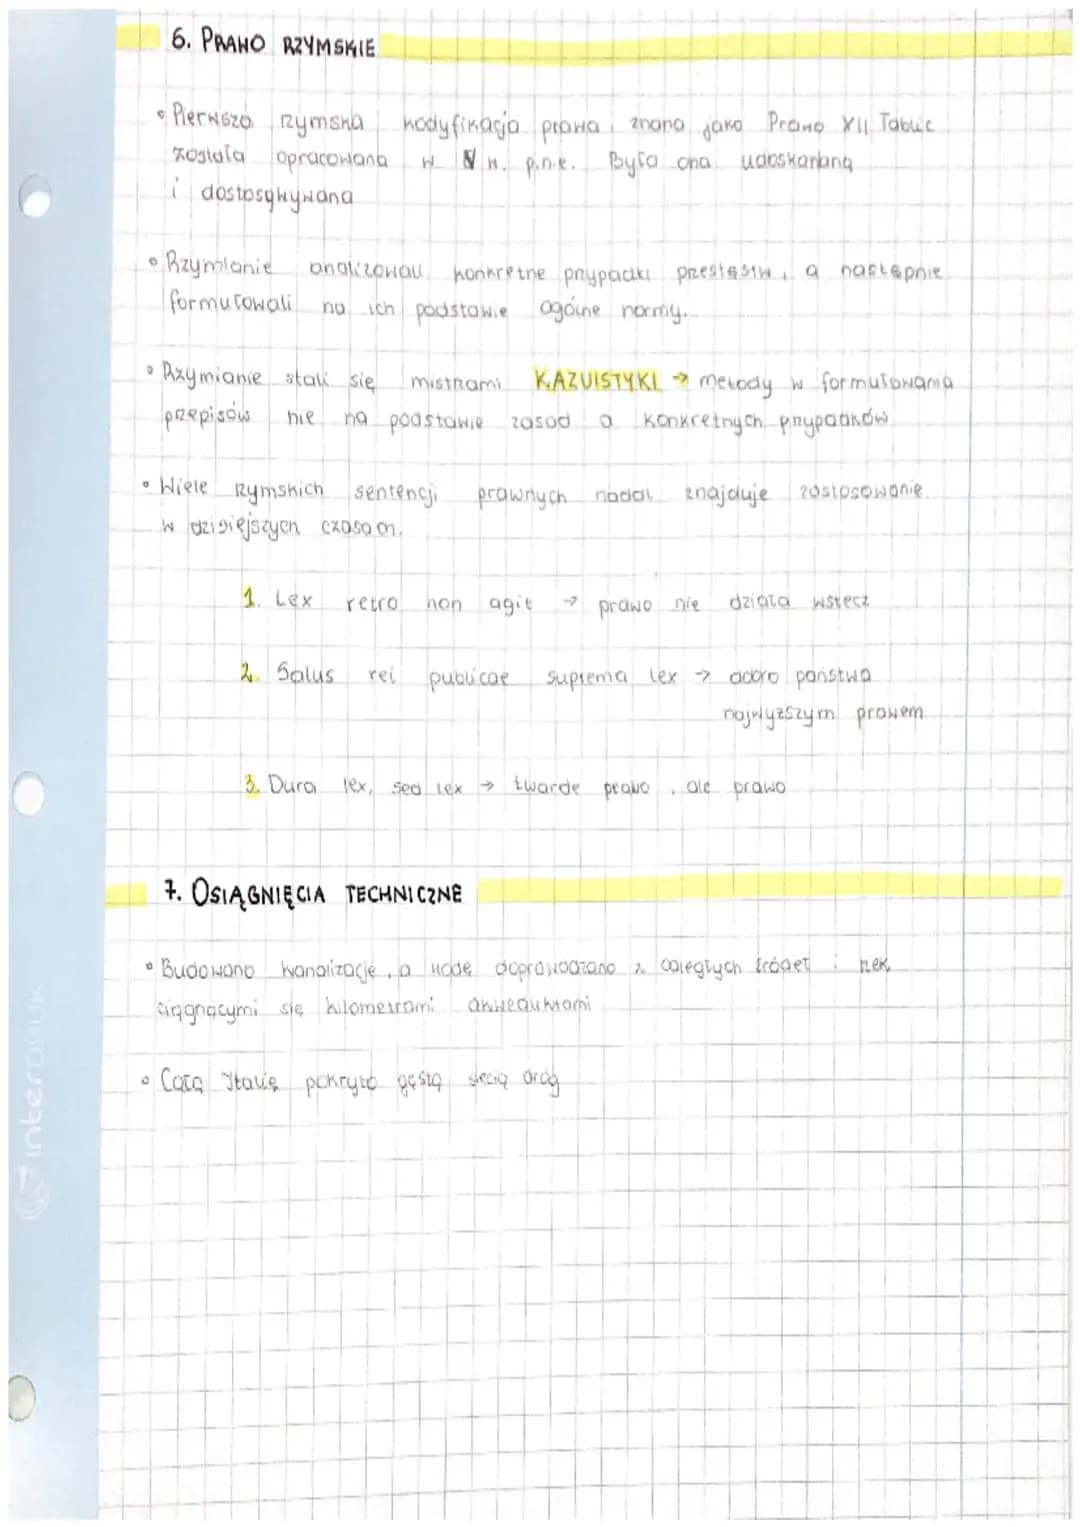 6. PRAWO RZYMSKIE
• Pierwsza rzymska kodyfikacja prawa, znana jako Prawo XII Tablic
została opracowana w V w. p.n.e. Była ona udoskanlaną
i dostosowywana
• Rzymianie analizowali konkretne przypadki przestęstw, a następnie
formułowali na ich podstawie ogólne normy.
• Rzymianie stali się mistrzami KAZUISTYKI → metody w formułowania
przepisów nie na podstawie zasad a konkretnych przypadków
• Wiele rzymskich sentencji prawnych nadal znajduje zastosowanie
w dzisiejszych czasach.
1. Lex retro non agit → prawo nie działa wstecz
2. Salus rei publicae suprema lex → dobro państwa
najwyższym prawem
3. Dura lex, sed lex → twarde prawo, ale prawo
7. OSIĄGNIĘCIA TECHNICZNE
• Budowano kanalizację, a wodę doprowadzano z odległych źródeł i rzek
ciągnącymi się kilometrami akweduktami
• Całą Italię pokryto gęstą siecią dróg
interdruk